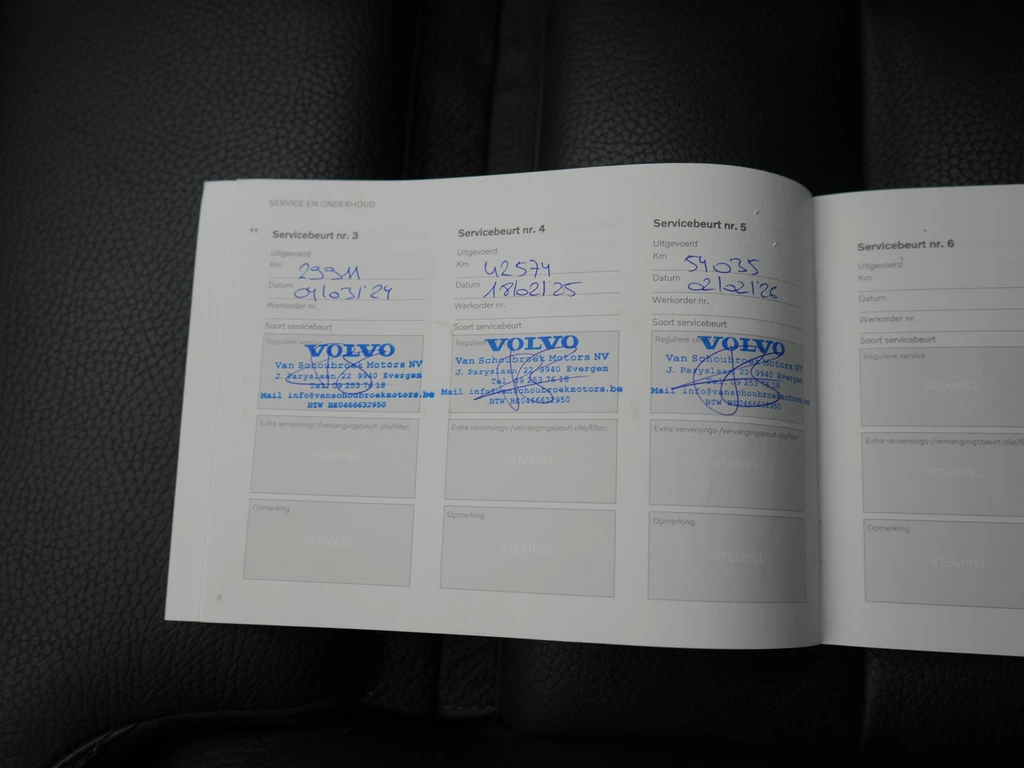 SERVICE EN ONDERHOUD
“
Servicebeurt nr. 3
Uitgevoerd
Km 29911
Datum 04/03/'24
Werkorder nr.
Soort servicebeurt
Reguliere service
VOLVO
Van Schoubroek Motors NV
J. Paryslaan 22 9940 Evergem
Tel. 09 253 76 18
Mail info@vanschoubroekmotors.be
BTW BE0466632950
Extra verversings-/vervangingsbeurt olie/filter:
STEMPEL
Opmerking
STEMPEL
8
Servicebeurt nr. 4
Uitgevoerd
Km 42574
Datum 18/02/'25
Werkorder nr.
Soort servicebeurt
Reguliere
VOLVO
Van Schoubroek Motors NV
J. Paryslaan 22 9940 Evergem
Tel. 09 253 76 18
Mail info@vanschoubroekmotors.be
BTW BE0466632950
Extra verversings-/vervangingsbeurt olie/filter:
STEMPEL
Opmerking
STEMPEL
Servicebeurt nr. 5
Uitgevoerd
Km 54035
Datum 02/02/'26
Werkorder nr.
Soort servicebeurt
Reguliere se
VOLVO
Van Schoubroek Motors NV
J. Paryslaan 22 9940 Evergem
Tel. 09 253 76 18
Mail info@vanschoubroekmotors.be
BTW BE0466632950
Extra verversings-/vervangingsbeurt olie/filter
STEMPEL
Opmerking
STEMPEL
Servicebeurt nr. 6
Uitgevoerd
Km
Datum
Werkorder nr.
Soort servicebeurt
Reguliere service
STEMPEL
Extra verversings-/vervangingsbeurt olie/fi
STEMPEL
Opmerking
STEMPEL